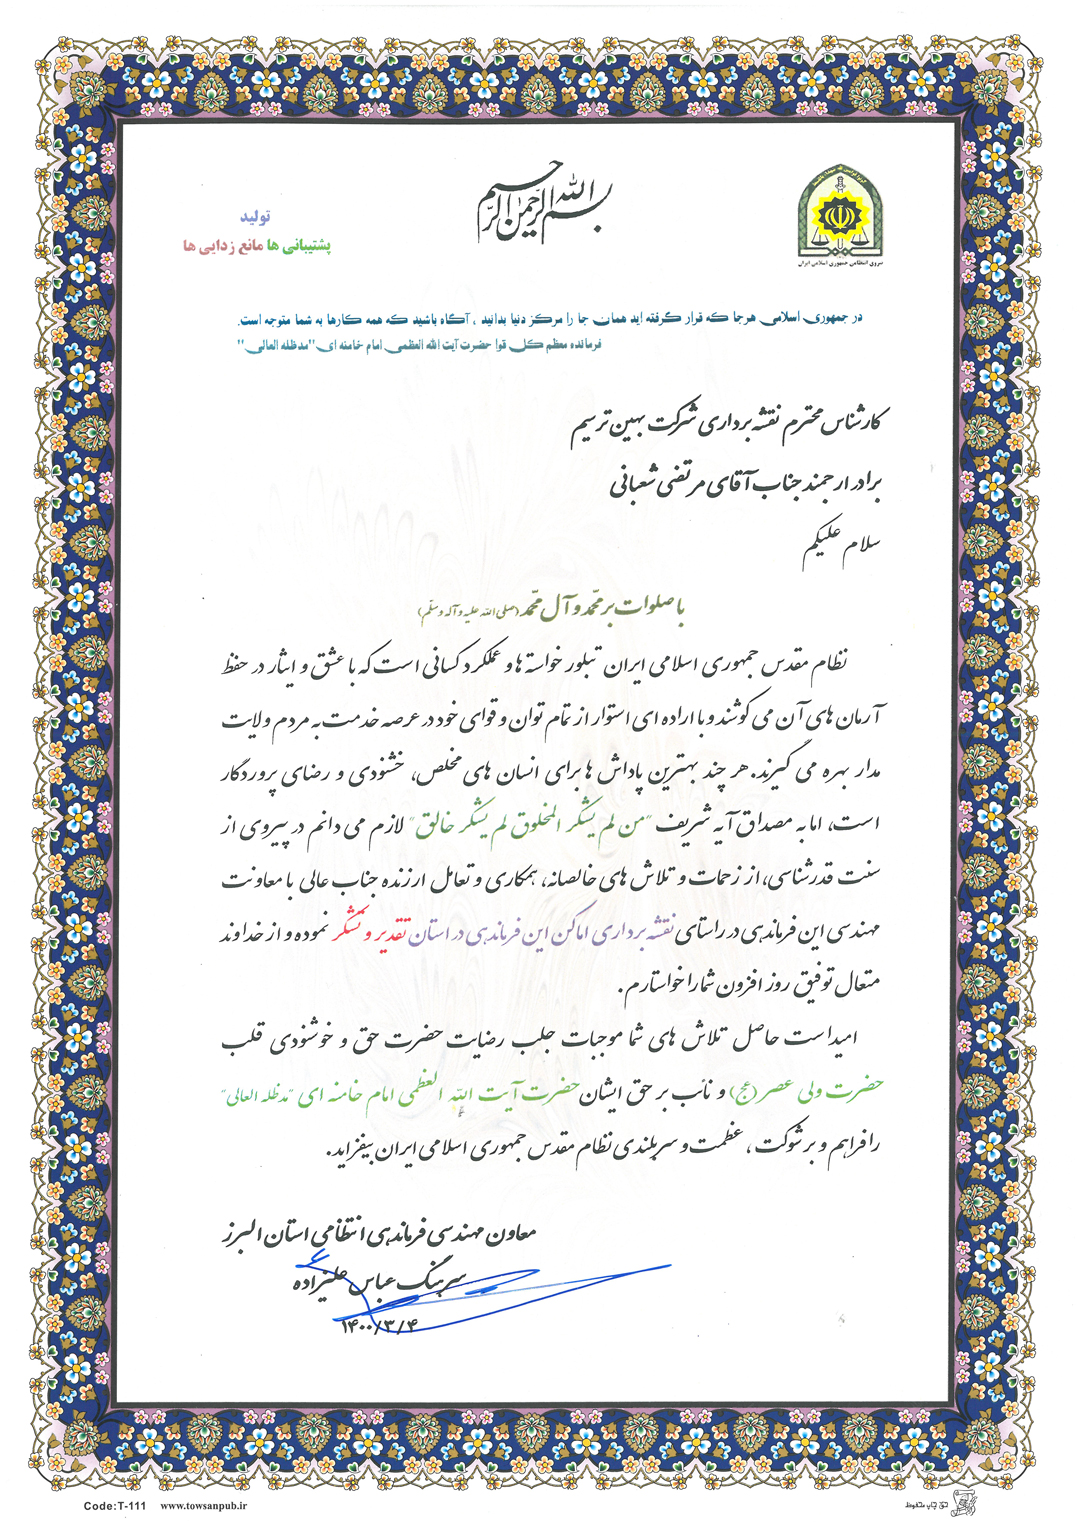 بسم الله الرحمن الرحیم
نیروی انتظامی جمهوری اسلامی ایران
تولید
پشتیبانی ها مانع زدایی ها
در جمهوری اسلامی هرجا که قرار گرفته اید همان جا را مرکز دنیا بدانید ، آگاه باشید که همه کارها به شما متوجه است.
فرمانده معظم کل قوا حضرت آیت الله العظمی امام خامنه ای "مدظله العالی"
کارشناس محترم نقشه برداری شرکت بهین ترسیم
برادر ارجمند جناب آقای مرتضی شعبانی
سلام علیکم
با صلوات بر محمّد و آل محمّد (صلی الله علیه و آله و سلّم)
نظام مقدس جمهوری اسلامی ایران تبلور خواسته ها و عملکرد کسانی است که با عشق و ایثار در حفظ
آرمان های آن می کوشند و با اراده ای استوار از تمام توان و قوای خود در عرصه خدمت به مردم ولایت
مدار بهره می گیرند. هر چند بهترین پاداش ها برای انسان های مخلص، خشنودی و رضای پروردگار
است، اما به مصداق آیه شریف "من لم یشکر المخلوق لم یشکر خالق" لازم می دانم در پیروی از
سنت قدرشناسی، از زحمات و تلاش های خالصانه، همکاری و تعامل ارزنده جناب عالی با معاونت
مهندسی این فرماندهی در راستای نقشه برداری اماکن این فرماندهی در استان تقدیر و تشکر نموده و از خداوند
متعال توفیق روز افزون شما را خواستارم.
امید است حاصل تلاش های شما موجبات جلب رضایت حضرت حق و خوشنودی قلب
حضرت ولی عصر (عج) و نائب بر حق ایشان حضرت آیت الله العظمی امام خامنه ای "مدظله العالی"
را فراهم و بر شوکت ، عظمت و سربلندی نظام مقدس جمهوری اسلامی ایران بیفزاید.
معاون مهندسی فرماندهی انتظامی استان البرز
سرهنگ عباس علیزاده
۱۴۰۰/۳/۴
Code:T-111 www.towsanpub.ir
حق چاپ محفوظ